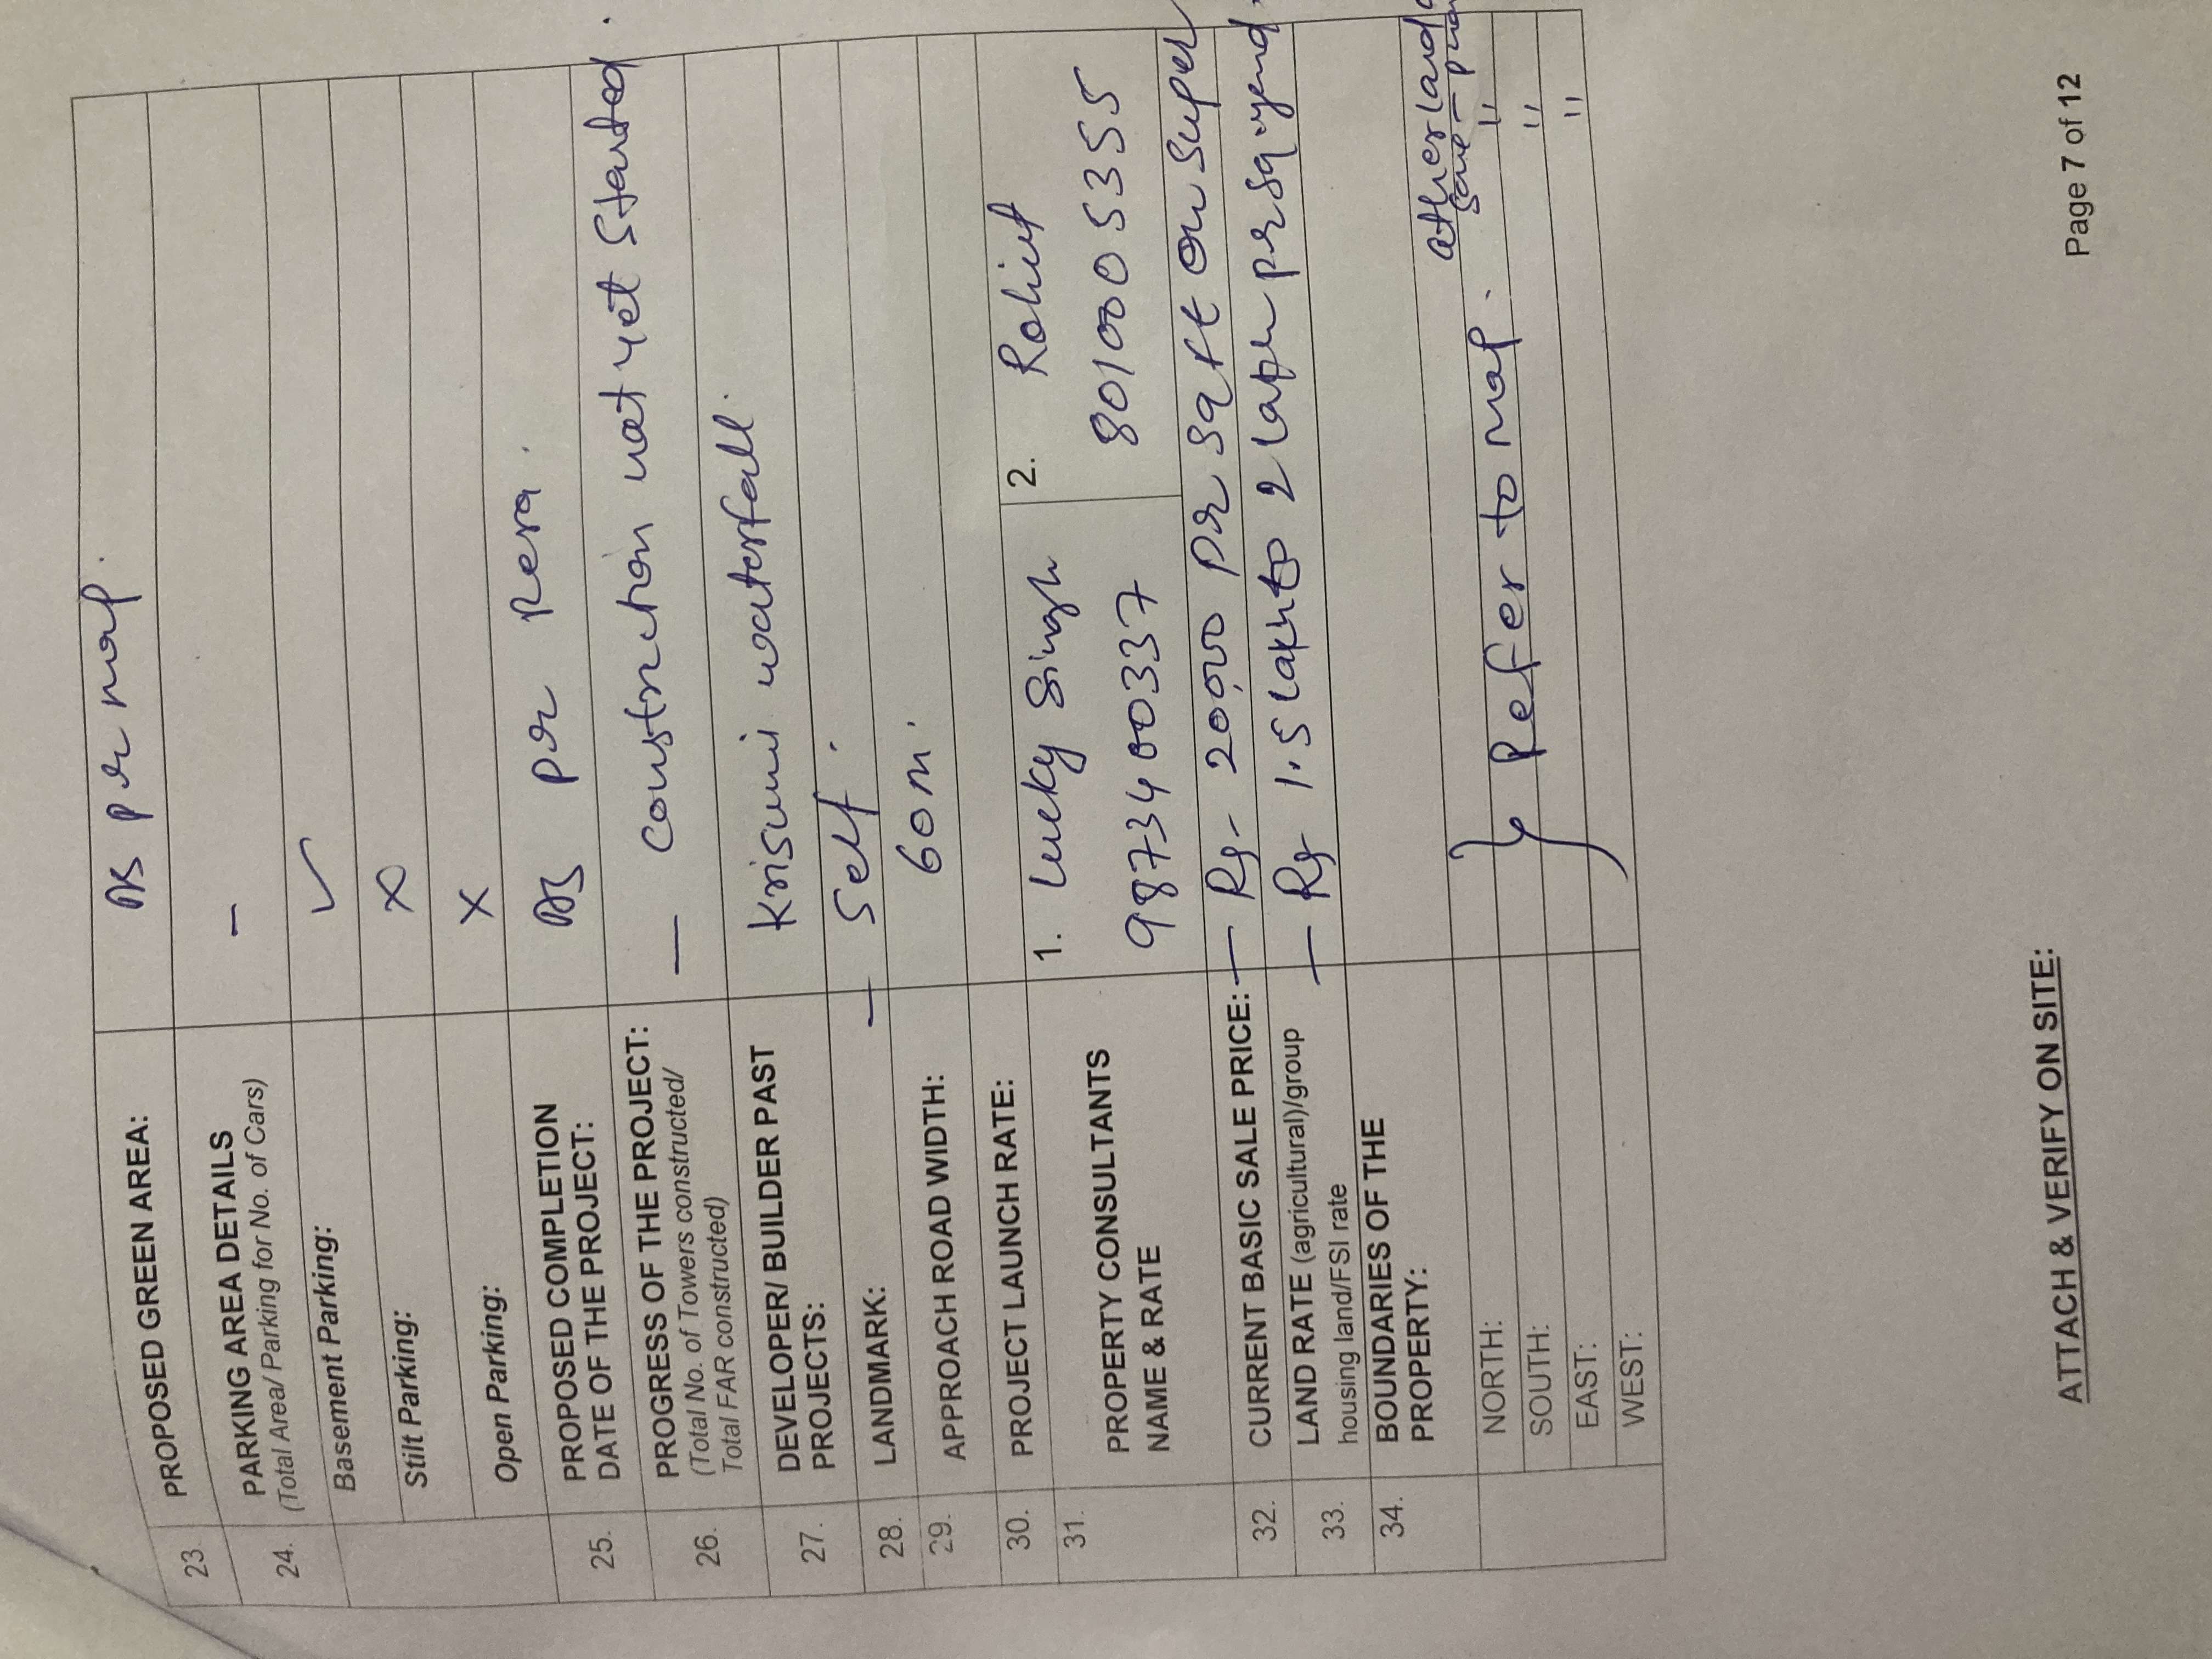 23. PROPOSED GREEN AREA: As pr map.
24. PARKING AREA DETAILS -
(Total Area/ Parking for No. of Cars)
Basement Parking: ✓
Stilt Parking: x
Open Parking: x
25. PROPOSED COMPLETION As pr Rera.
DATE OF THE PROJECT:
26. PROGRESS OF THE PROJECT: — Construction not yet started.
(Total No. of Towers constructed/
Total FAR constructed)
27. DEVELOPER/ BUILDER PAST Krisumi waterfall.
PROJECTS:
28. LANDMARK: — Self.
29. APPROACH ROAD WIDTH: 60m.
30. PROJECT LAUNCH RATE:
31. PROPERTY CONSULTANTS 1. Lucky Singh 2. Rohit
NAME & RATE 9873400337 8010005355
32. CURRENT BASIC SALE PRICE: — Rs- 20,000 pr sqft on super
33. LAND RATE (agricultural)/group — Rs 1.5 lakh to 2 lakh pr sq.yard.
housing land/FSI rate
34. BOUNDARIES OF THE
PROPERTY:
other land
NORTH: "
SOUTH: } Refer to map. "
EAST: "
WEST:
ATTACH & VERIFY ON SITE:
Page 7 of 12